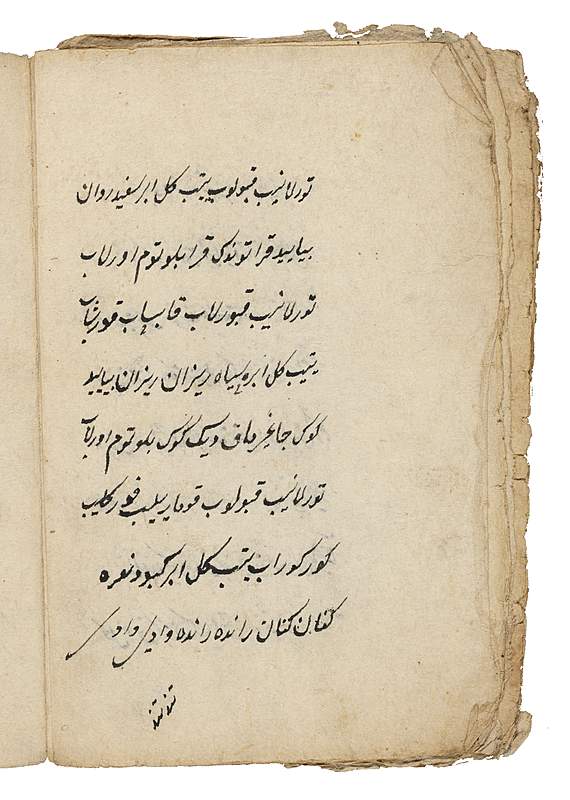 تورلانیب قبولوب یتیب کل ابر سفید روان
بیایید قرا توندک قرا بلوتوم اورلاب
تورلانیب قبورلاب قابساب قورشاب
یتیب کل ابره سیاه ریزان ریزان بیایید
کوک دیک کوک بلوتوم اورلاب
تورلانیب قبولوب کلیب
کورکوراب یتیب کل ابر کبود نعره
کنان کنان رانده رانده وادی وادی